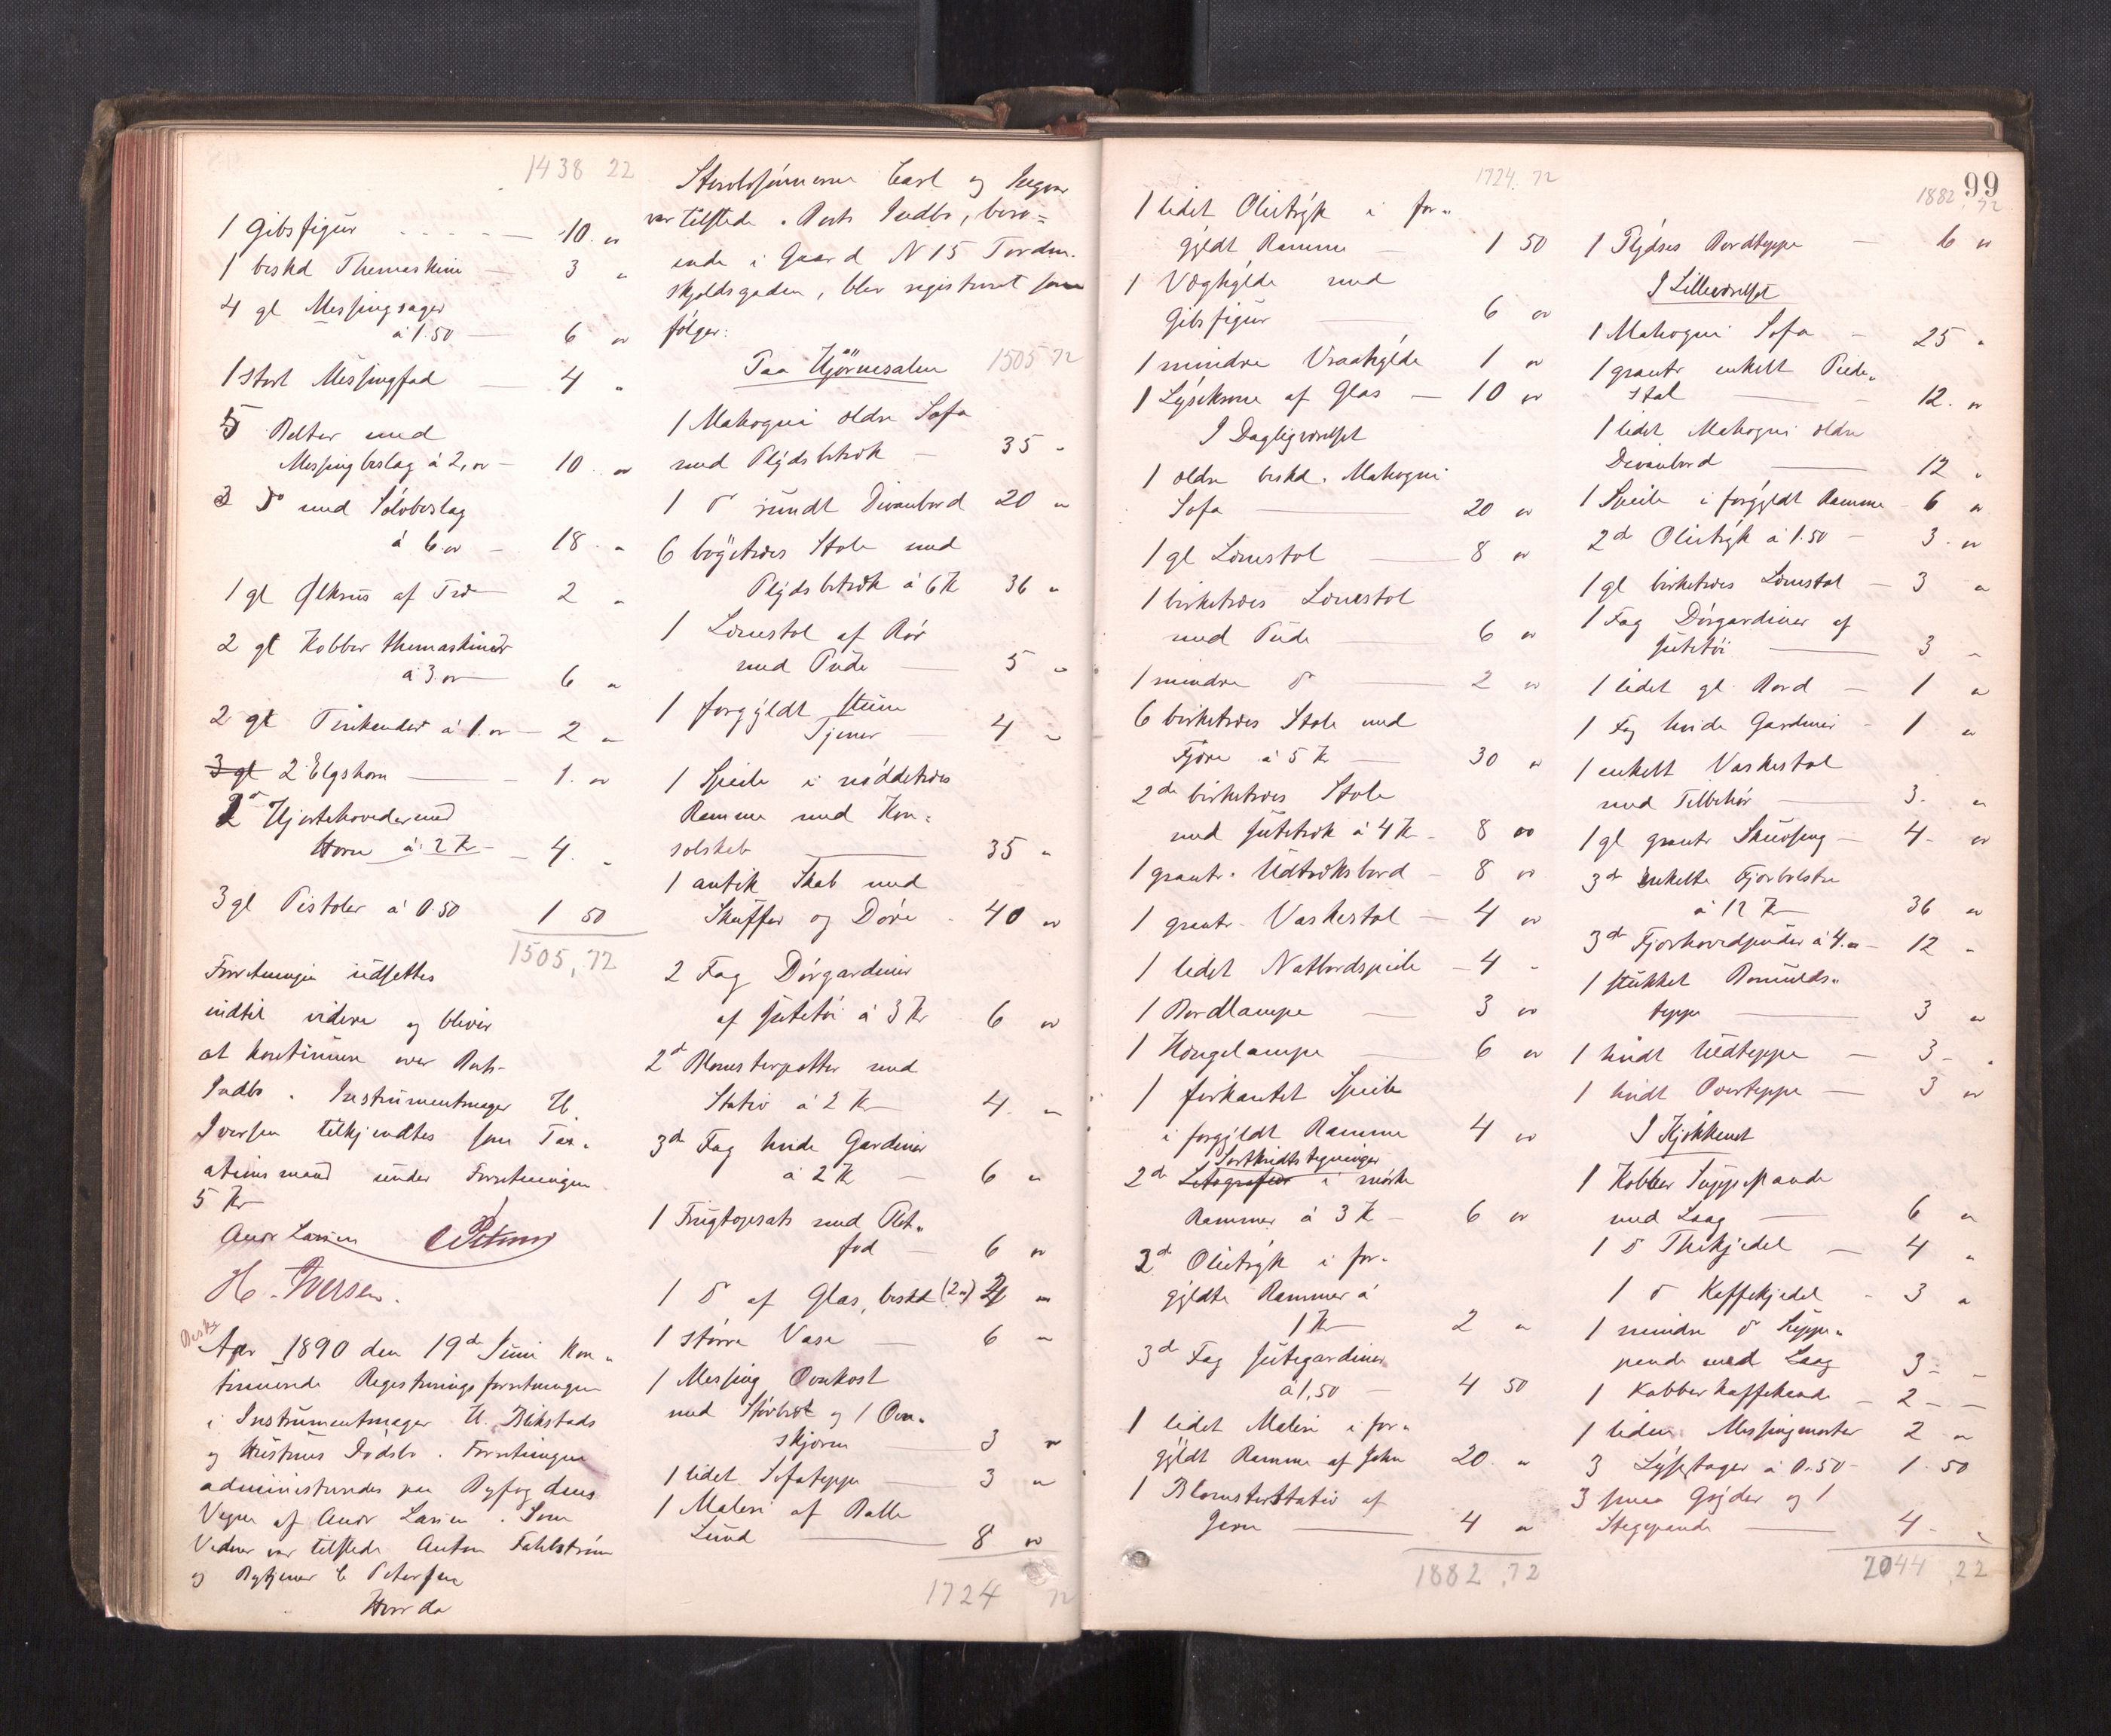 1438 22
1 Gibsfigur - - - - - 10. "
1 beskd Themaskine — 3 "
4 gl Messingsager
à 1.50 — 6 "
1 stort Messingfad — 4 "
5 Belter med
Messingbeslag à 2, " — 10 "
3 do med Sölvbeslag
à 6 " — 18. "
1 gl Ølkrus af Træ — 2 "
2 gl Kobber themaskiner
à 3 " — 6 "
2 gl Tinkander à 1. " — 2 "
3 gl 2 Elgshorn — 1. "
2 Hjortehoveder med
Horn à 2 Kr — 4. "
3 gl Pistoler à 0.50 1 50
1505,72
Forretningen udsettes
indtil videre og bliver
at kontinuere over Boets
Indbo. Instrumentmager H.
Iversen tilkjendtes som Tax-
ationsmand under Forretningen
5 Kr
Andr Larsen C Petersen
H. Iversen.
Aar 1890 den 19de Juni kon-
tinuerede Registreringsforretningen
i Instrumentmager H. Bikstads
og Hustrues Dödsbo. Forretningen
administreredes paa Byfogdens
Vegne af Andr Larsen. Som
Vidner var tilstede Anton Fahlström
og Bytjener C Petersen
Hvor da
Stervbsönnerne Carl og Ingvar
var tilstede. Boets Indbo, bero=
ende i Gaard N 15 Torden-
skjoldsgaden, blev registreret som
fölger:
Paa Hjörnesalen 1505 72
1 Mahogni ældre Sofa
med Plydsbetræk — 35 "
1 do rundt Divanbord 20 "
6 bögetræes Stole med
Plydsbetræk à 6 Kr 36 "
1 Lænestol af Rör
med Pude — 5 "
1 forgyldt stum
Tjener — 4 "
1 Speile i nöddetræes
Ramme med Kon-
solskab — 35 "
1 antik Skab med
Skuffer og Döre - 40 "
2 Fag Dörgardiner
af Jutetöi à 3 Kr 6 "
2 d Blomsterpotter med
Stativ à 2 Kr 4. "
3 de Fag hvide Gardiner
à 2 Kr — 6 "
1 Frugtopsats med Plet-
fod — 6 "
1 do af Glas, beskd (2 ") 2 "
1 större Vase — 6 "
1 Messing Ovnkost
med Störbret og 1 Ovn-
skjærm — 3 "
1 lidet Sofateppe — 3 "
1 Maleri af Balle
Lund — 8 "
1724 72
1724.72
1 lidet Olietryk i for-
gyldt Ramme — 1 50
1 Væghylde med
Gibsfigur — 6 "
1 mindre Vraahylde 1 "
1 Lysekrone af Glas — 10 "
I Dagligværelset
1 ældre beskd. Mahogni
Sofa — 20 "
1 gl Lænestol — 8 "
1 birketræes Lænestol
med Pude — 6 "
1 mindre do — 2 "
6 birketræes Stole med
Fjære à 5 Kr — 30 "
2 de birketræes Stole
med Jutetræk à 4 Kr - 8 "
1 grantr. Udtræksbord - 8 "
1 grantr. Vaskestol — 4 "
1 lidet Natbordspeile — 4 "
1 Bordlampe — 3 "
1 Hængelampe — 6 "
1 firkantet Speile
i forgyldt Ramme 4 "
Sortkridtstegninger
2 de Litografier i mörke
Rammer à 3 Kr — 6 "
2 d Olietryk i for-
gyldte Rammer à
1 Kr 2 "
3 de Fag Jutegardiner
à 1,50 — 4 50
1 lidet Maleri i for-
gyldt Ramme af John 20 "
1 Blomsterstativ af
Jern — 4 "
1882,72
99
1882,72
1 Plydses Bordteppe — 6 "
I Lilleværelset
1 Mahogni Sofa — 25 "
1 grantr enkelt Piede-
stal — 12. "
1 lidet Mahogni ældre
Divanbord — 12 "
1 Speile i forgyldt Ramme - 6 "
2 de Olietryk à 1.50 — 3. "
1 gl birketræes Lænestol — 3 "
1 Fag Dörgardiner af
Jutetöi — 3 "
1 lidet gl. Bord — 1 "
1 Fag hvide Gardiner - 1 "
1 enkelt Vaskestol
med Tilbehör — 3. "
1 gl grantr Skuvseng — 4. "
3 de enkelte Fjærbolstre
à 12 Kr 36 "
3 de Fjærhovedpuder à 4. " — 12 "
1 stukket Bomulds-
teppe — 3 "
1 hvidt Uldteppe — 3 - "
1 hvidt Overteppe — 3 "
I Kjökkenet
1 Kobber Suppepande
med Laag — 6 "
1 do Thekjedel — 4 "
1 do Kaffekjedel - 3 "
1 mindre do Suppe-
pande med Laag 3 - -
1 Kobber kaffekande — 2 - -
1 liden Messingmorter 2 "
3 Lysestager à 0.50 — 1.50
3 smaa Gryder og 1
Stegepande — 4 - "
2044,22